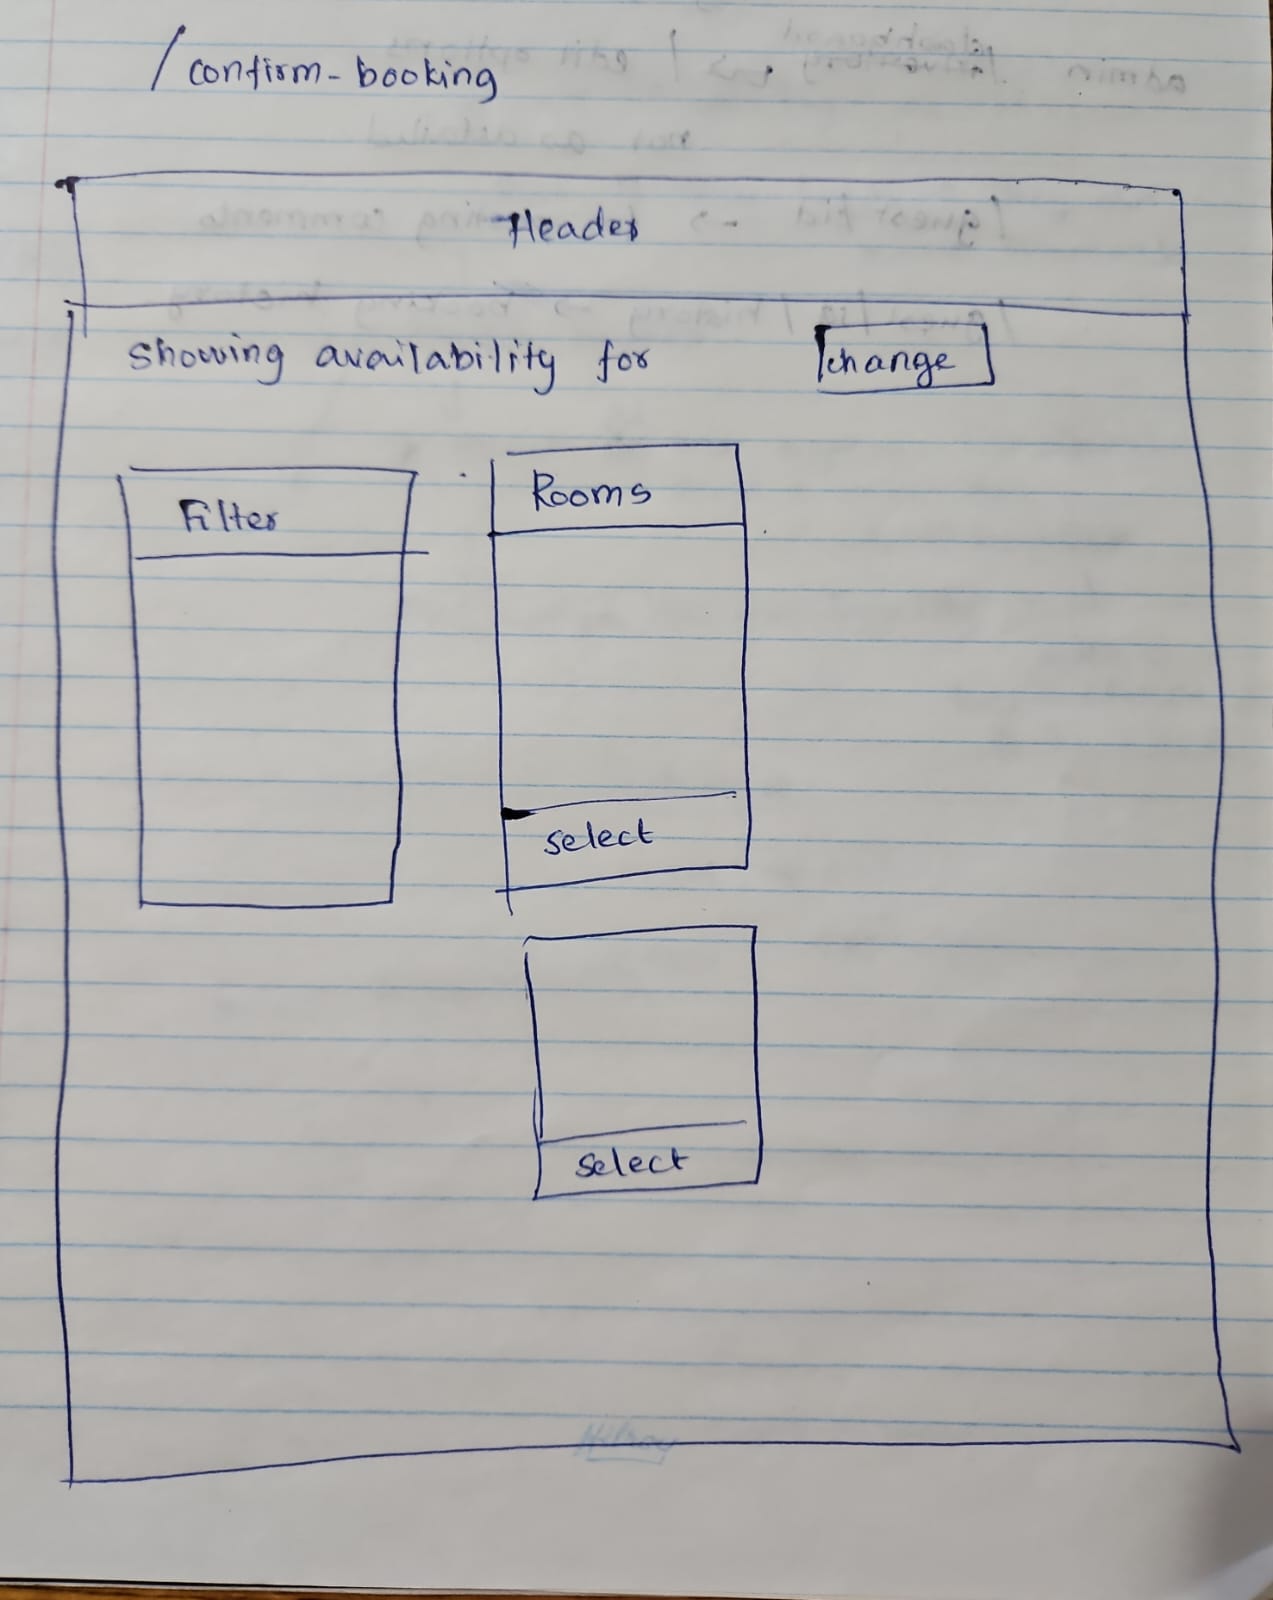 /confirm-booking
Header
Showing availability for
change
Filter
Rooms
select
select